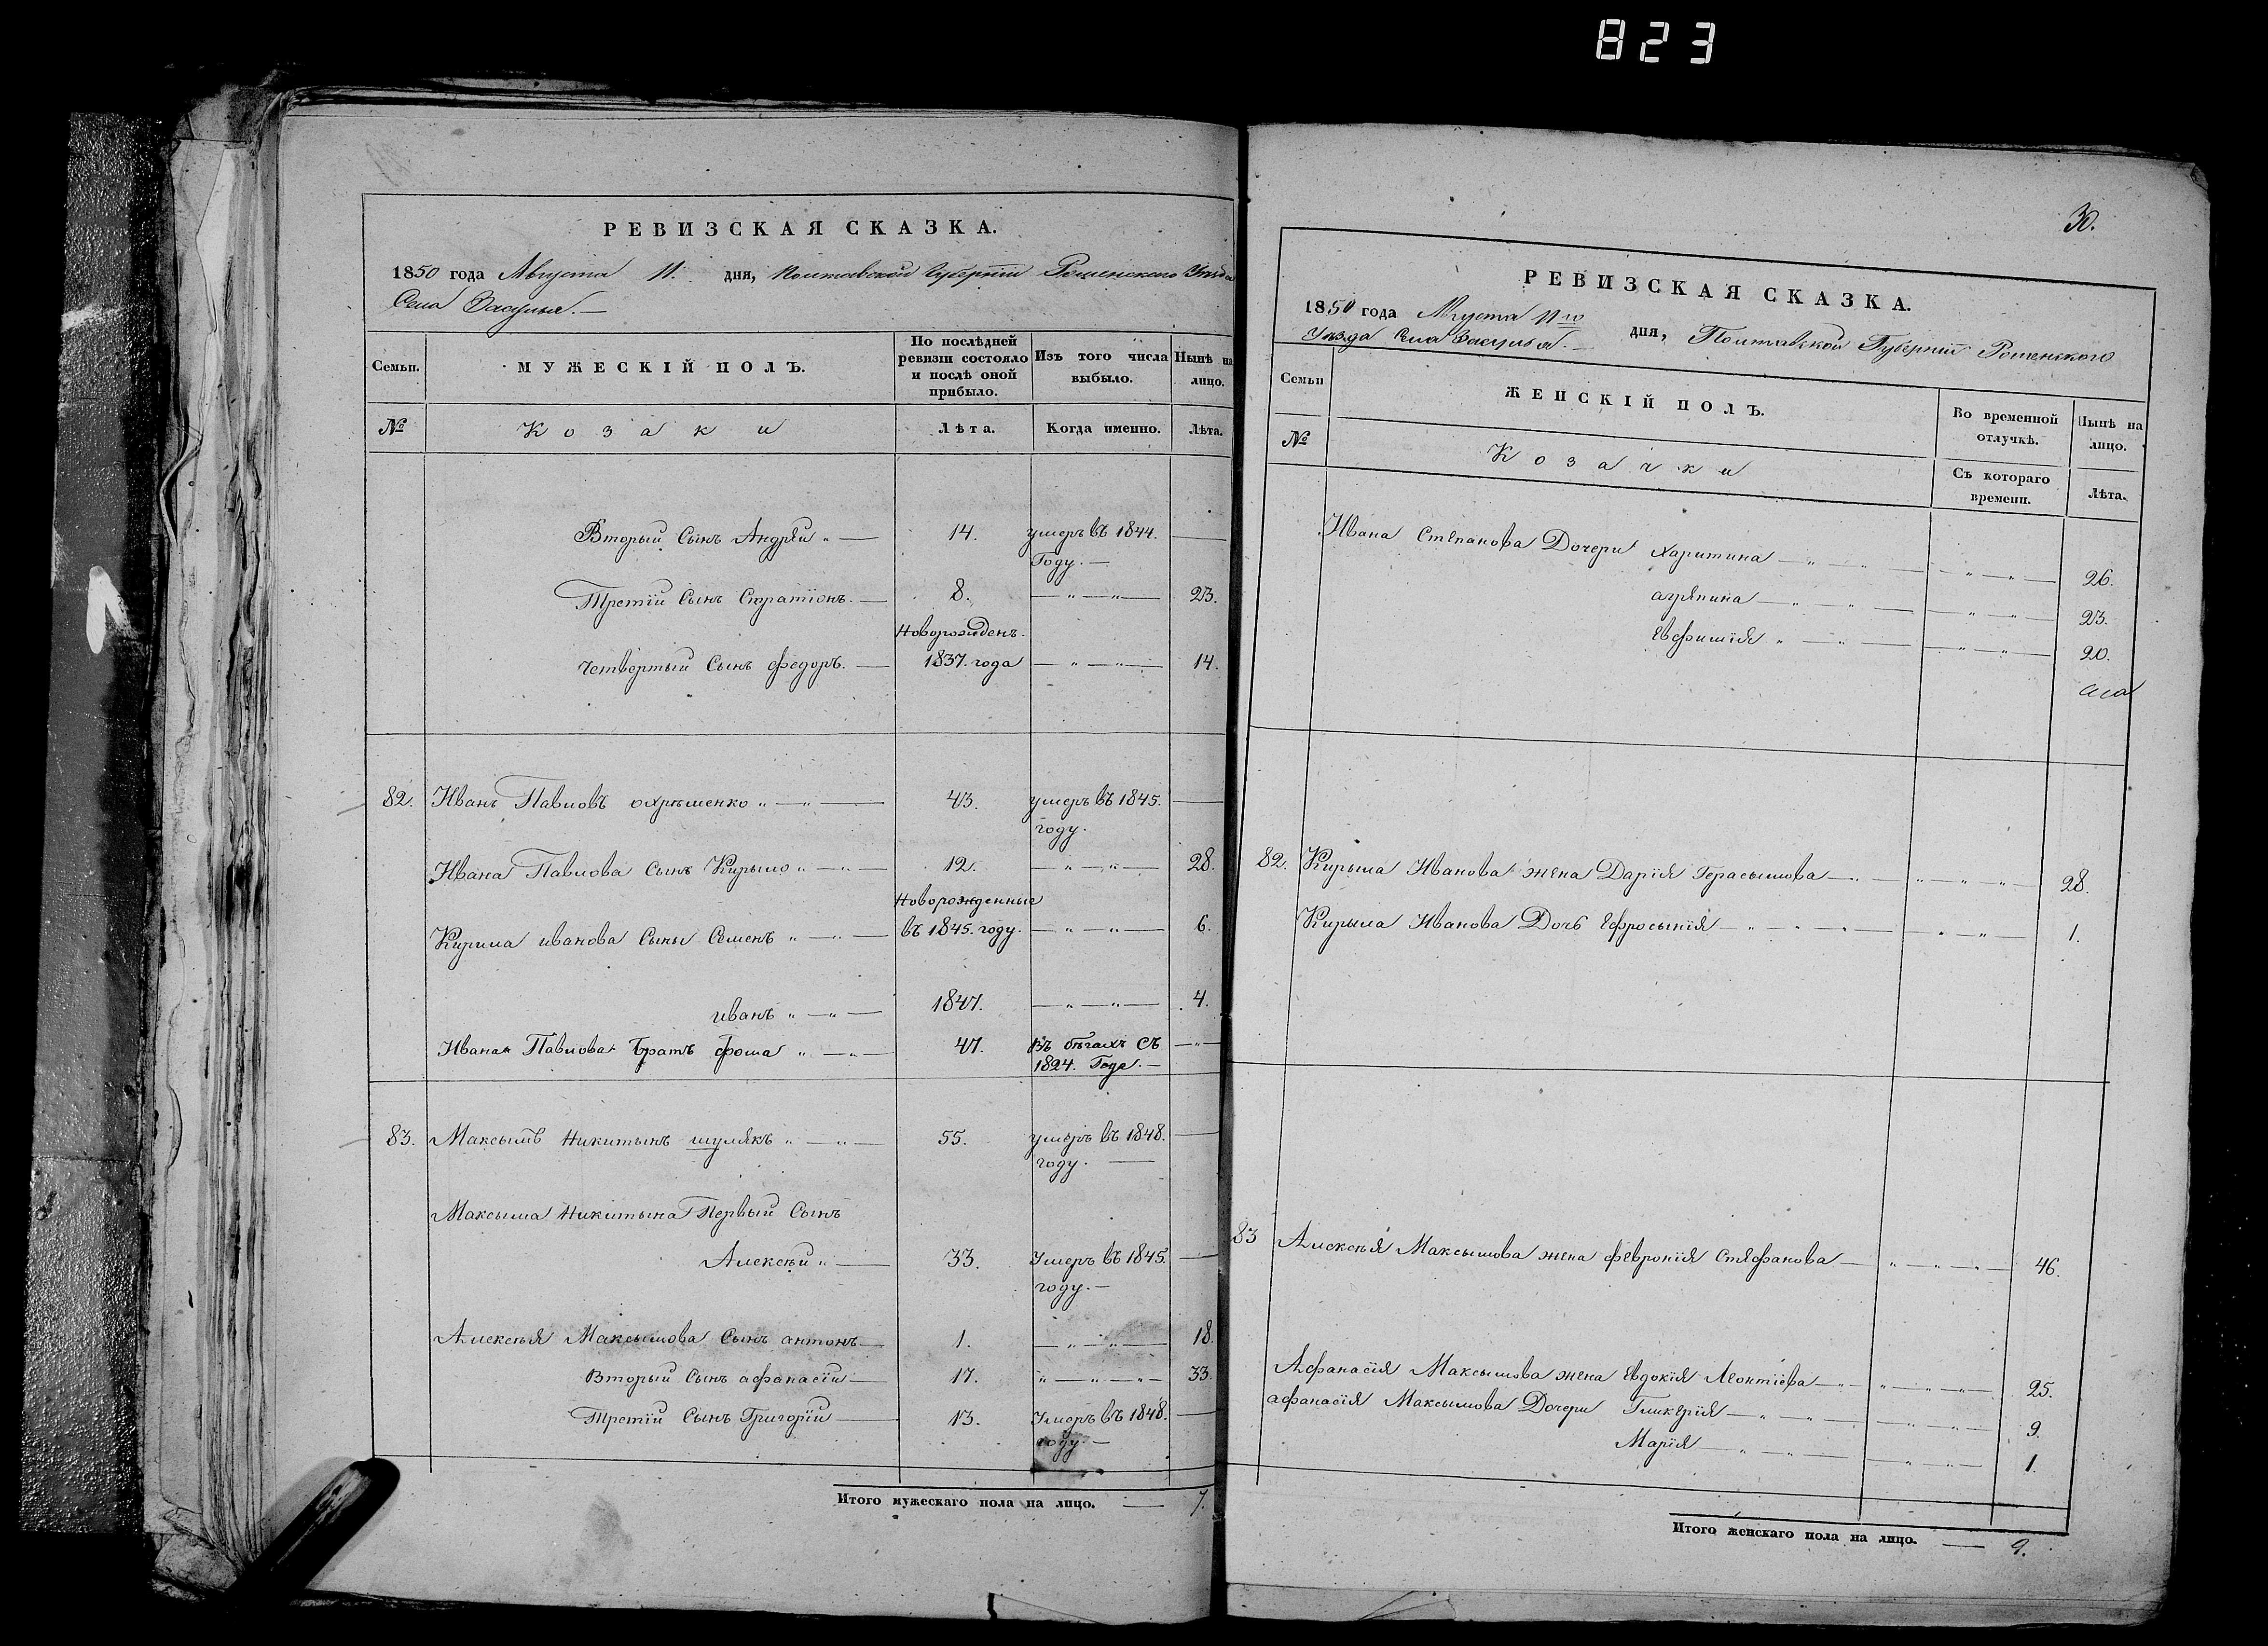 823
РЕВИЗСКАЯ СКАЗКА.
1850 года Августа 11. дня, Полтавской Губернии Роменского Уезда
Села Засулья. —
Семьи.
МУЖЕСКІЙ ПОЛЪ.
По послѣдней ревизіи состояло и послѣ оной прибыло.
Изъ того числа выбыло.
Нынѣ на лицо.
№
Козаки
Лѣта.
Когда именно.
Лѣта.
Вторый Сынъ Андрей " — 14. умеръ въ 1844. —
Году. —
Третій Сынъ Стратіонъ. — 8. — " — " — 23.
Новорожденъ.
четвертый Сынъ федоръ. — 1837. года — " — " — 14.
82. Иванъ Павловъ охрѣменко " — " — 43. умеръ въ 1845. —
году.
Ивана Павлова Сынъ Кирыло " — " — 12. — " — " — 28.
Новорожденные
Кирила иванова Сыны Семенъ " — " — въ 1845. году. — " — " — 6.
иванъ " — " — 1847. — " — " — 4.
Ивана Павлова братъ фома " — " — 47. Въ бѣгахъ Съ — " —
1824. Года. —
83. Максымъ Никитынъ шулякъ " — " — 55. умеръ въ 1848. —
году. —
Максыма Никитына Первый Сынъ
Алексѣй " — 33. Умеръ въ 1845. —
году. —
Алексѣя Максымова Сынъ антонъ — 1. — " — " — 18.
Вторый Сынъ афанасій — 17. " — " — " — 33.
Третій Сынъ Григорій — 13. Умеръ въ 1848. —
году. —
Итого мужескаго пола на лицо. — 7.
30.
РЕВИЗСКАЯ СКАЗКА.
1850 года Августа 11го дня, Полтавской Губерніи Роменского
Уезда Села Засулья. —
Семьи
ЖЕНСКІЙ ПОЛЪ.
Во временной отлучкѣ.
Нынѣ на лицо.
№
Козачки
Съ котораго времени.
Лѣта.
Ивана Степанова Дочери Харитина — " — " — 26.
агрепина — " — " — 23.
Евфимія " — " — 20.
82. Кирыла Иванова жена Дарія Герасымова — " — 28.
Кирыла Иванова Дочь Ефросынія — " — " — 1.
83 Алексѣя Максымова жена февронія Стефанова — " — 46.
Афанасія Максымова жена Евдокія Леонтіева — " — 25.
афанасія Максымова Дочери Гликерія — " — " — 9.
Марія — " — " — 1.
Итого женскаго пола на лицо. — 9.